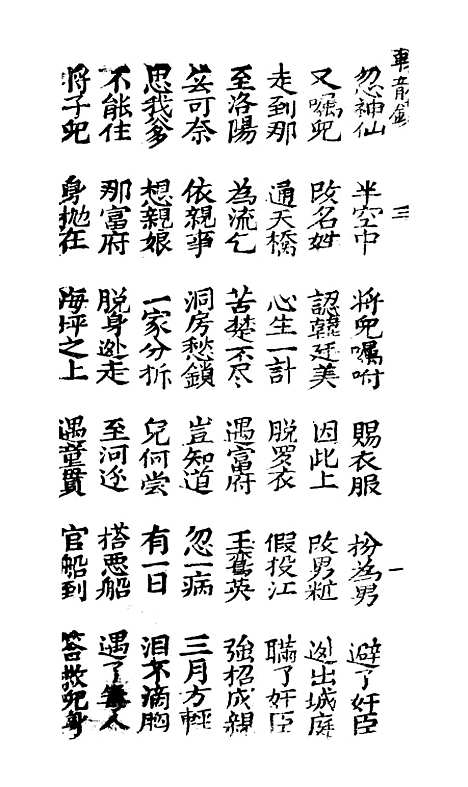 三 一
忽神仙 半空中 将兒嘱咐 賜衣服 扮為男 避了奸臣
又嘱兒 改名姓 認韓廷美 因此上 改男粧 逃出城庭
走到那 通天橋 心生一計 脱罗衣 假投江 瞞了奸臣
至洛陽 為流乞 苦楚不尽 遇富府 王鸞英 強招成親
無可奈 依親事 洞房愁鎖 豈知道 忽一病 三月方輕
思我爹 想親娘 一家分拆 兒何尝 有一日 泪不滴胸
不能住 那富府 脱身逃走 至河边 搭悪船 遇了人
将子兒 身抛在 海坪之上 遇童貫 官船到 答救兒身